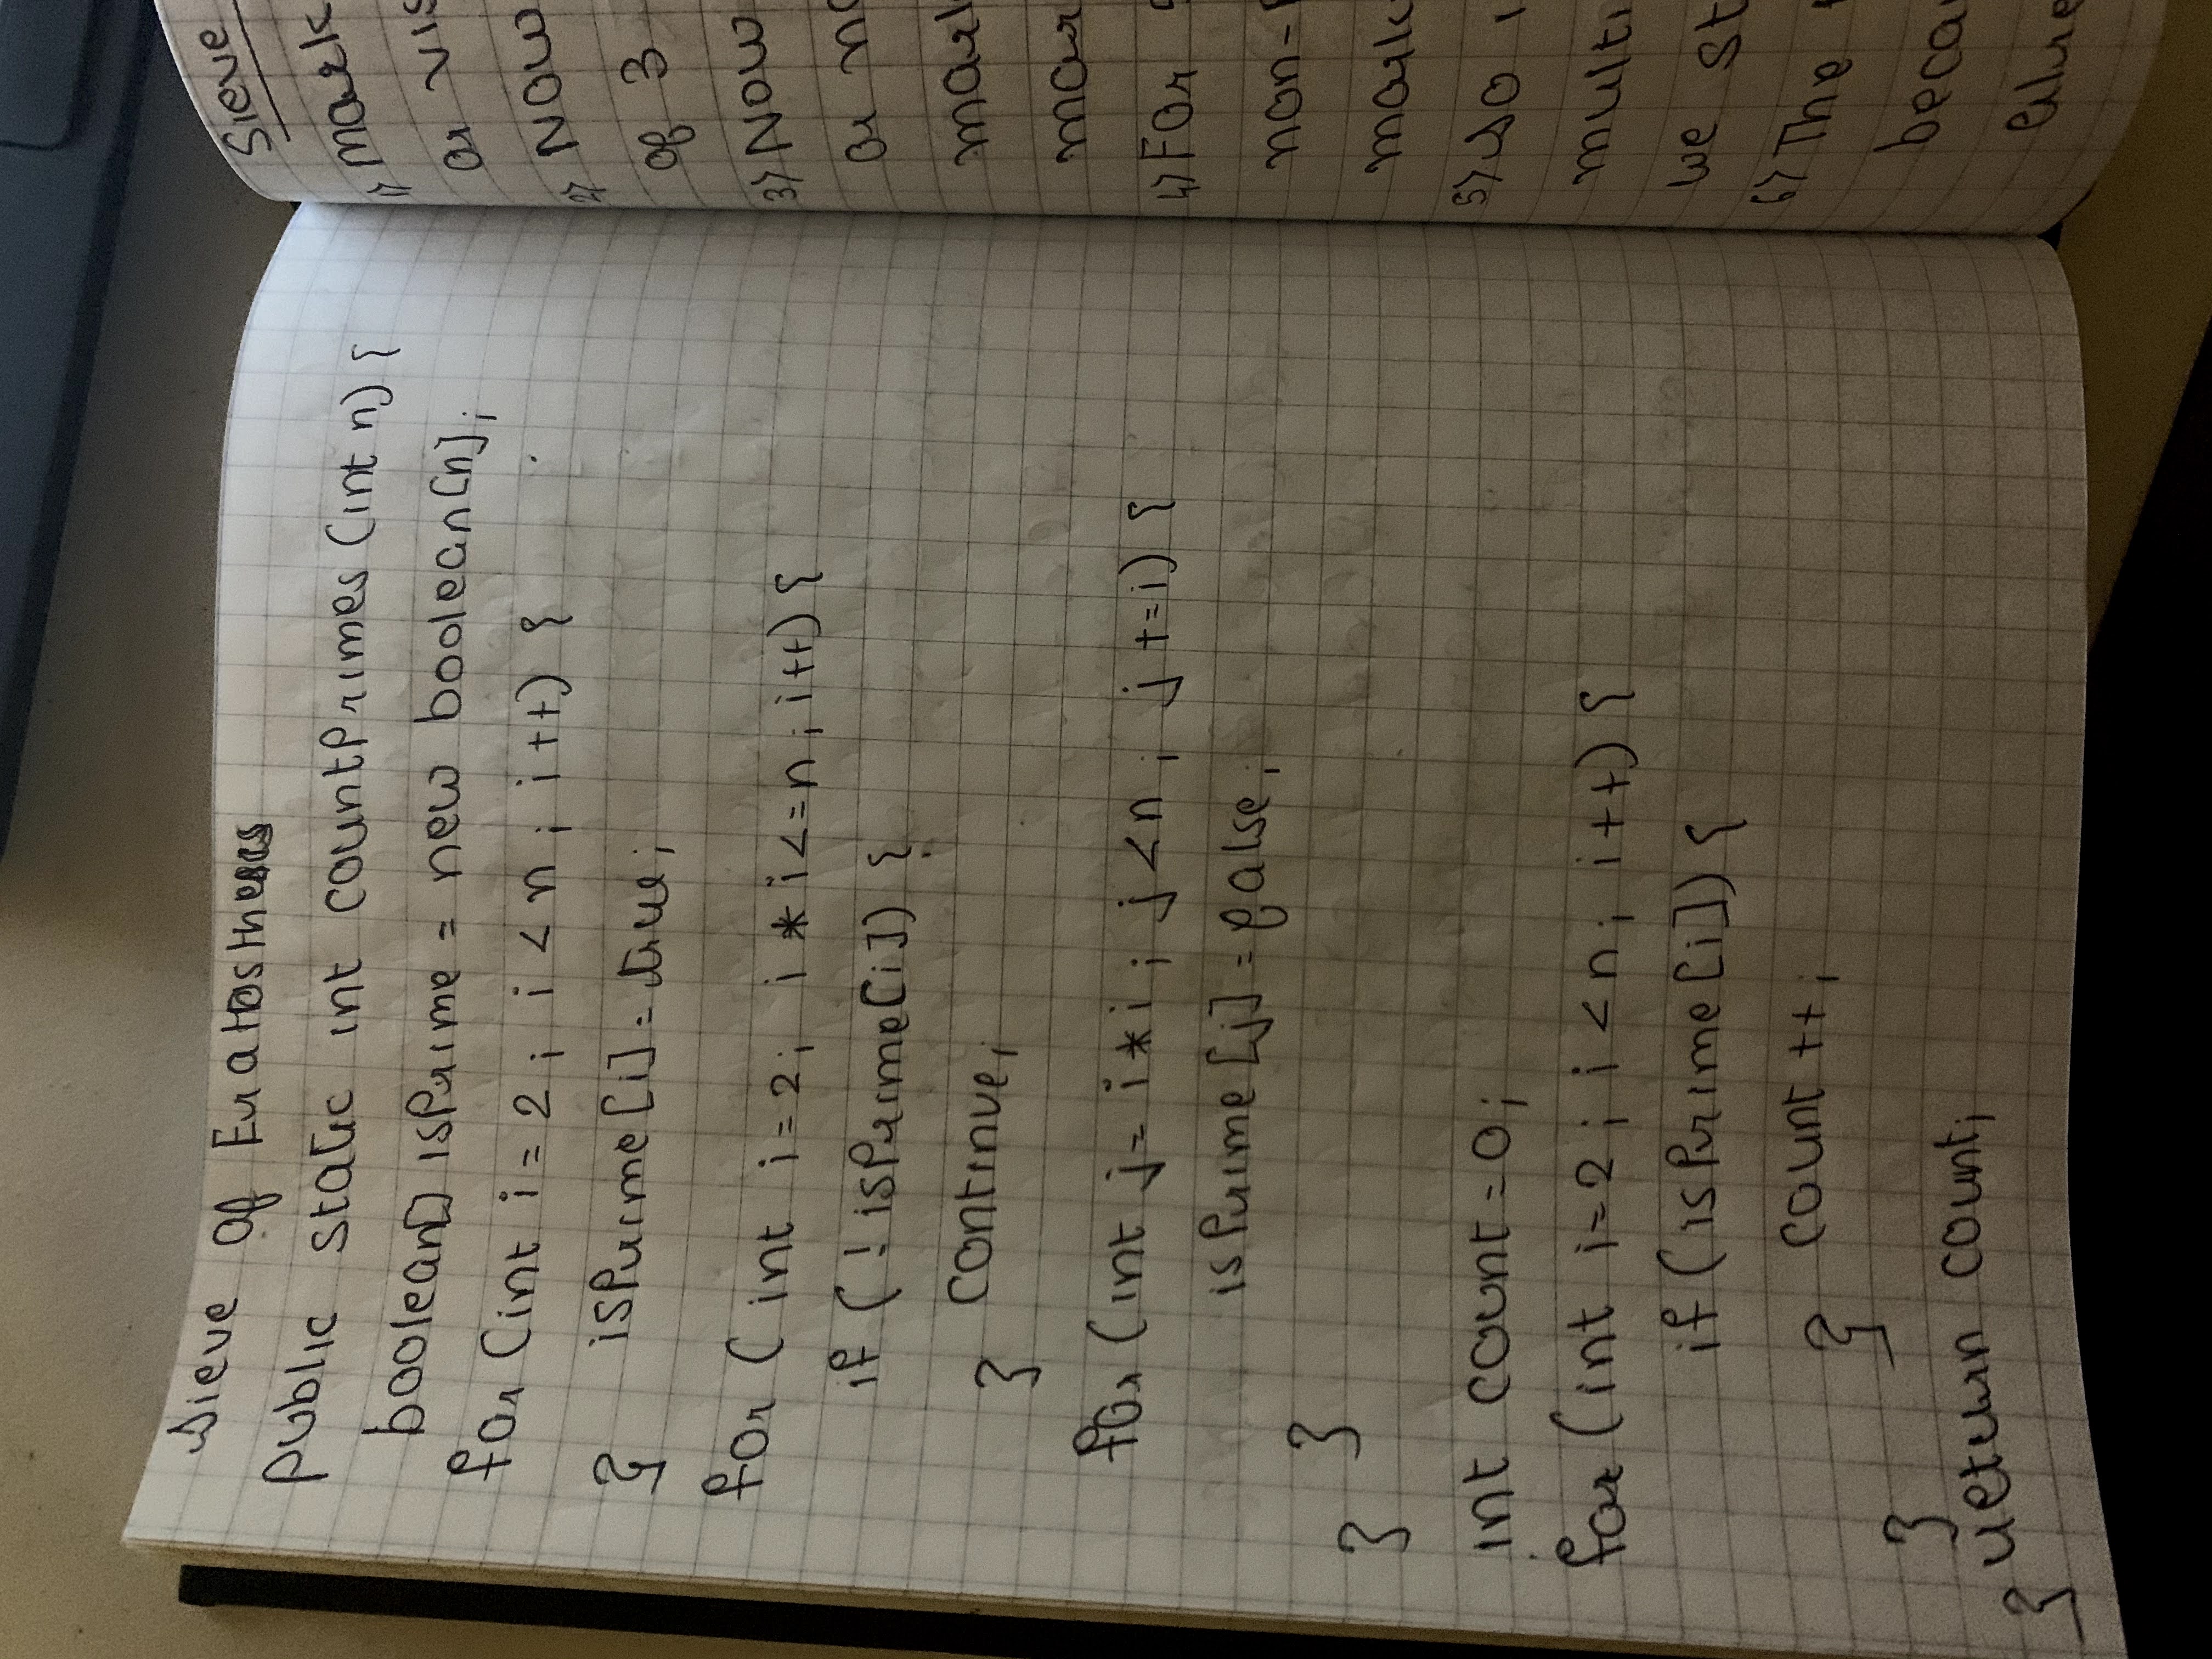 Sieve of Eratosthenes
public static int countPrimes (int n) {
boolean[] isPrime = new boolean[n];
for (int i = 2; i < n; i++) {
isPrime[i] = true;
}
for (int i = 2; i * i <= n; i++) {
if (! isPrime[i]) {
continue;
}
for (int j = i * i; j < n; j += i) {
isPrime[j] = false;
}
}
int count = 0;
for (int i = 2; i < n; i++) {
if (isPrime[i]) {
count ++;
}
}
return count;
}
Sieve
1) mark
or
2) Now
of 3
3) Now
or
4) For
non-
mark
5) So
we
6) The